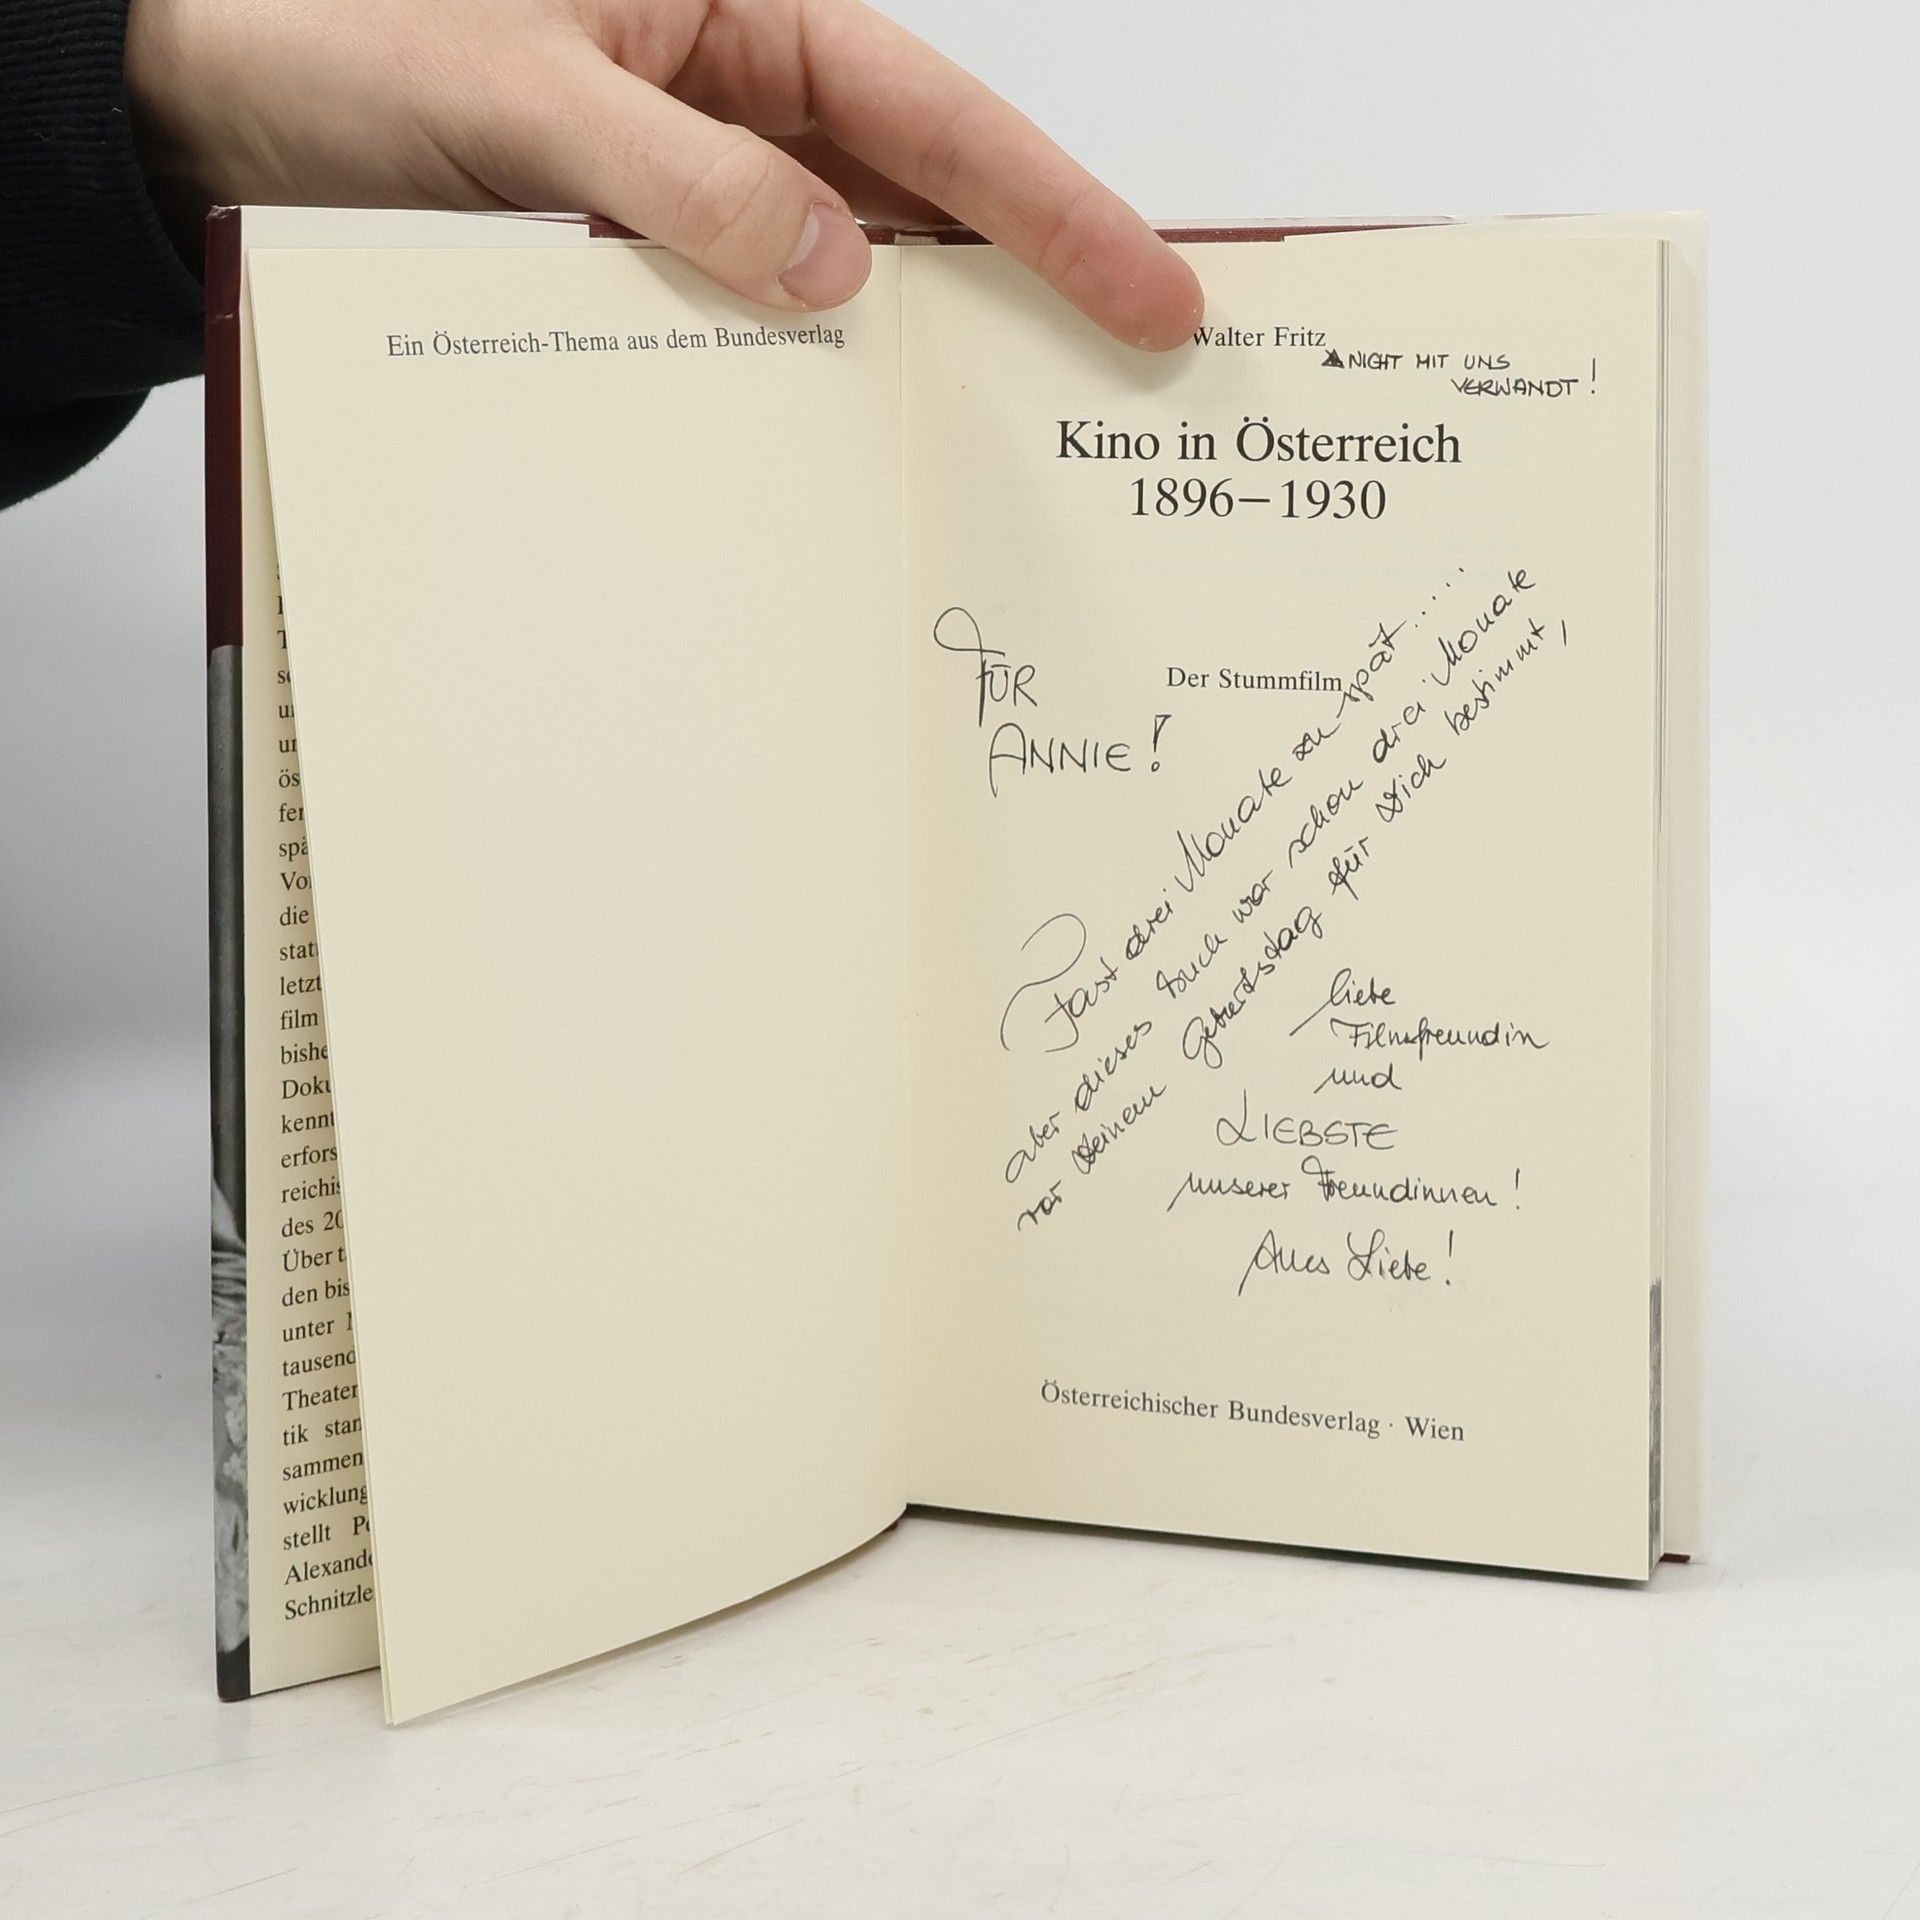 Ein Österreich-Thema aus dem Bundesverlag
ös
fer
spä
Vo
die
stat
letzt
film
bishe
Doku
kennt
erfors
reichis
des 20
Über t
den bis
unter
tausend
Theater
tik stan
sammen
wicklung
stellt
Alexand
Schnitzle
Walter Fritz
NICHT MIT UNS
VERWANDT!
Kino in Österreich
1896–1930
FÜR
ANNIE!
Der Stummfilm
Fast drei Monate zu spät.....
aber dieses Buch war schon drei Monate
vor Deinem Geburtstag für Dich bestimmt,
liebe
Filmfreundin
und
LIEBSTE
unserer Freundinnen!
Alles Liebe!
Österreichischer Bundesverlag · Wien